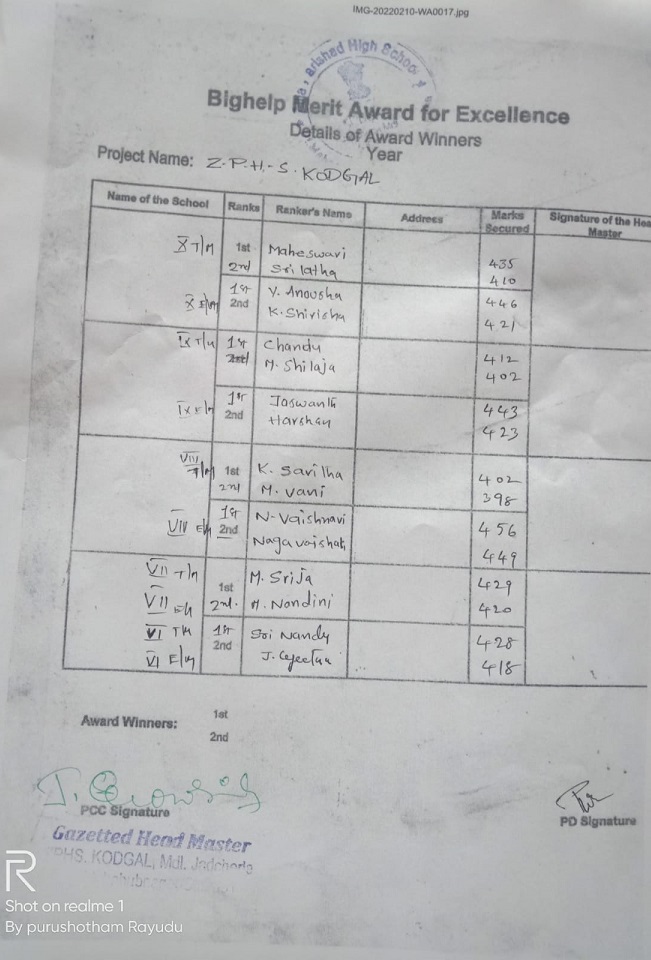 IMG-20220210-WA0017.jpg
Parishad High School
Bighelp Merit Award for Excellence
Details of Award Winners
Year
Project Name: Z.P.H.S. KODGAL
Name of the School Ranks Ranker's Name Address Marks Secured Signature of the Hea Master
X T/M 1st Maheswari 435
2nd Srilatha 410
1st V. Anousha 446
X E/M 2nd K. Shirisha 421
IX T/M 1st Chandu 412
2nd M. Shilaja 402
1st Jaswanth 443
IX E/M 2nd Harshan 423
VIII T/M 1st K. Savitha 402
2nd M. Vani 398
1st N. Vaishnavi 456
VIII E/M 2nd Nagavaishali 449
VII T/M 1st M. Srija 429
VII E/M 2nd. H. Nandini 420
VI T/M 1st Sri Nandu 428
VI E/M 2nd J. 418
Award Winners: 1st
2nd
PCC Signature
PD Signature
Gazetted Head Master
PHS. KODGAL, Mdl. Jadcherla
Shot on realme 1
By purushotham Rayudu